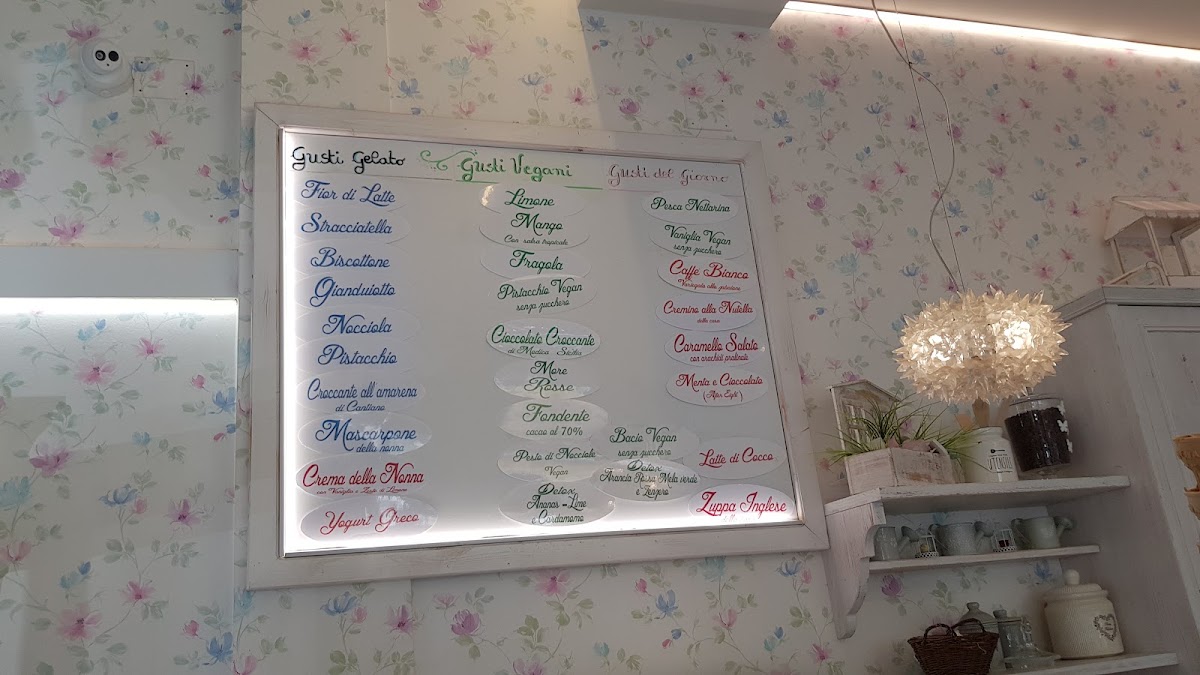 Gusti Gelato
Fior di Latte
Stracciatella
Biscottone
Gianduiotto
Nocciola
Pistacchio
Croccante all amarena
di Cantiano
Mascarpone
della nonna
Crema della Nonna
con Vaniglia e Zeste di Limone
Yogurt Greco
Gusti Vegani
Limone
Mango
Con salsa tropicale
Fragola
Pistacchio Vegan
senza zucchero
Cioccolato Croccante
di Modica Sicilia
More
Rosse
Fondente
cacao al 70%
Pesto di Nocciole
Vegan
Detox
Ananas - Lime
e Cardamomo
Bacio Vegan
senza zucchero
Detox
Arancia Rossa Mela verde
e Zenzero
Gusti del Giorno
Pesca Nettarina
Vaniglia Vegan
senza zucchero
Caffe Bianco
Variegato alla
Cremino alla Nutella
della casa
Caramello Salato
con arachidi pralinate
Menta e Cioccolato
(After Eight)
Latte di Cocco
Zuppa Inglese